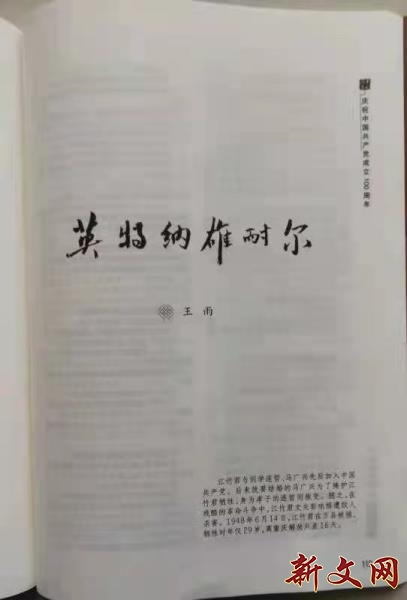 庆祝中国共产党成立100周年
英特纳雄耐尔
王雨
江竹君与同学连哲、马广兴先后加入中国
共产党。后来就要结婚的马广兴为了掩护江
竹君牺牲,身为孝子的连哲则叛变。随之,在
残酷的革命斗争中,江竹君丈夫彭咏梧遭敌人
杀害。1948年6月14日,江竹君在万县被捕,
牺牲时年仅29岁,离重庆解放只差16天。
新文网